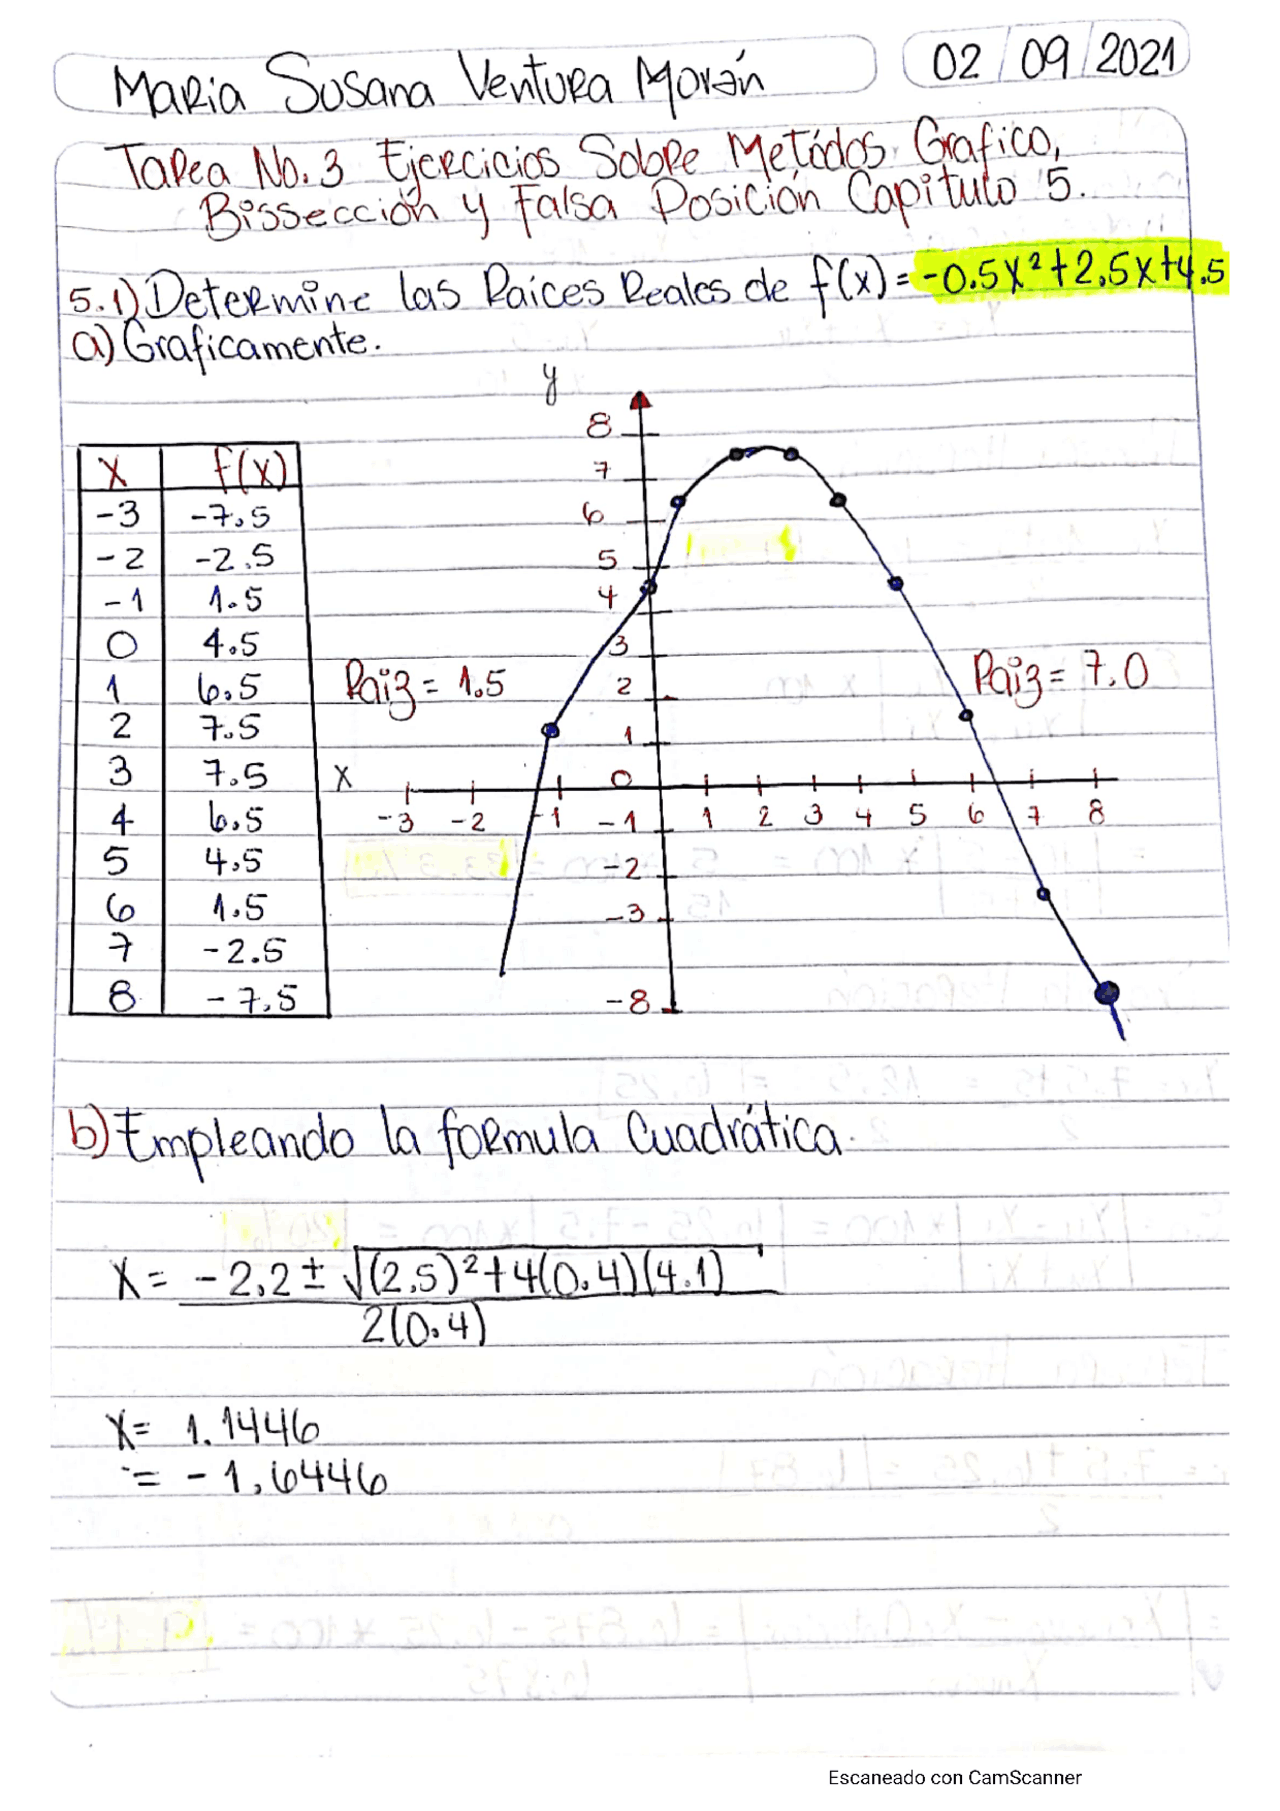 Maria Susana Ventura Morán
02/09/2021
Tarea No. 3 Ejercicios Sobre Metódos Grafico,
Bissección y Falsa Posición Capitulo 5.
5.1) Determine las Raices Reales de f(x) = -0.5x²+2.5x+4.5
a) Graficamente.
y
8
7
6
5
4
3
2
1
0
-1
-2
-3
-8
x f(x)
-3 -7.5
-2 -2.5
-1 1.5
0 4.5
1 6.5
2 7.5
3 7.5
4 6.5
5 4.5
6 1.5
7 -2.5
8 -7.5
Raiz = 1.5
Raiz = 7.0
x
-3 -2 -1 1 2 3 4 5 6 7 8
b) Empleando la formula Cuadrática.
X = -2.2 ± √(2.5)²+4(0.4)(4.1)
2(0.4)
X = 1.1446
= -1.6446
Escaneado con CamScanner